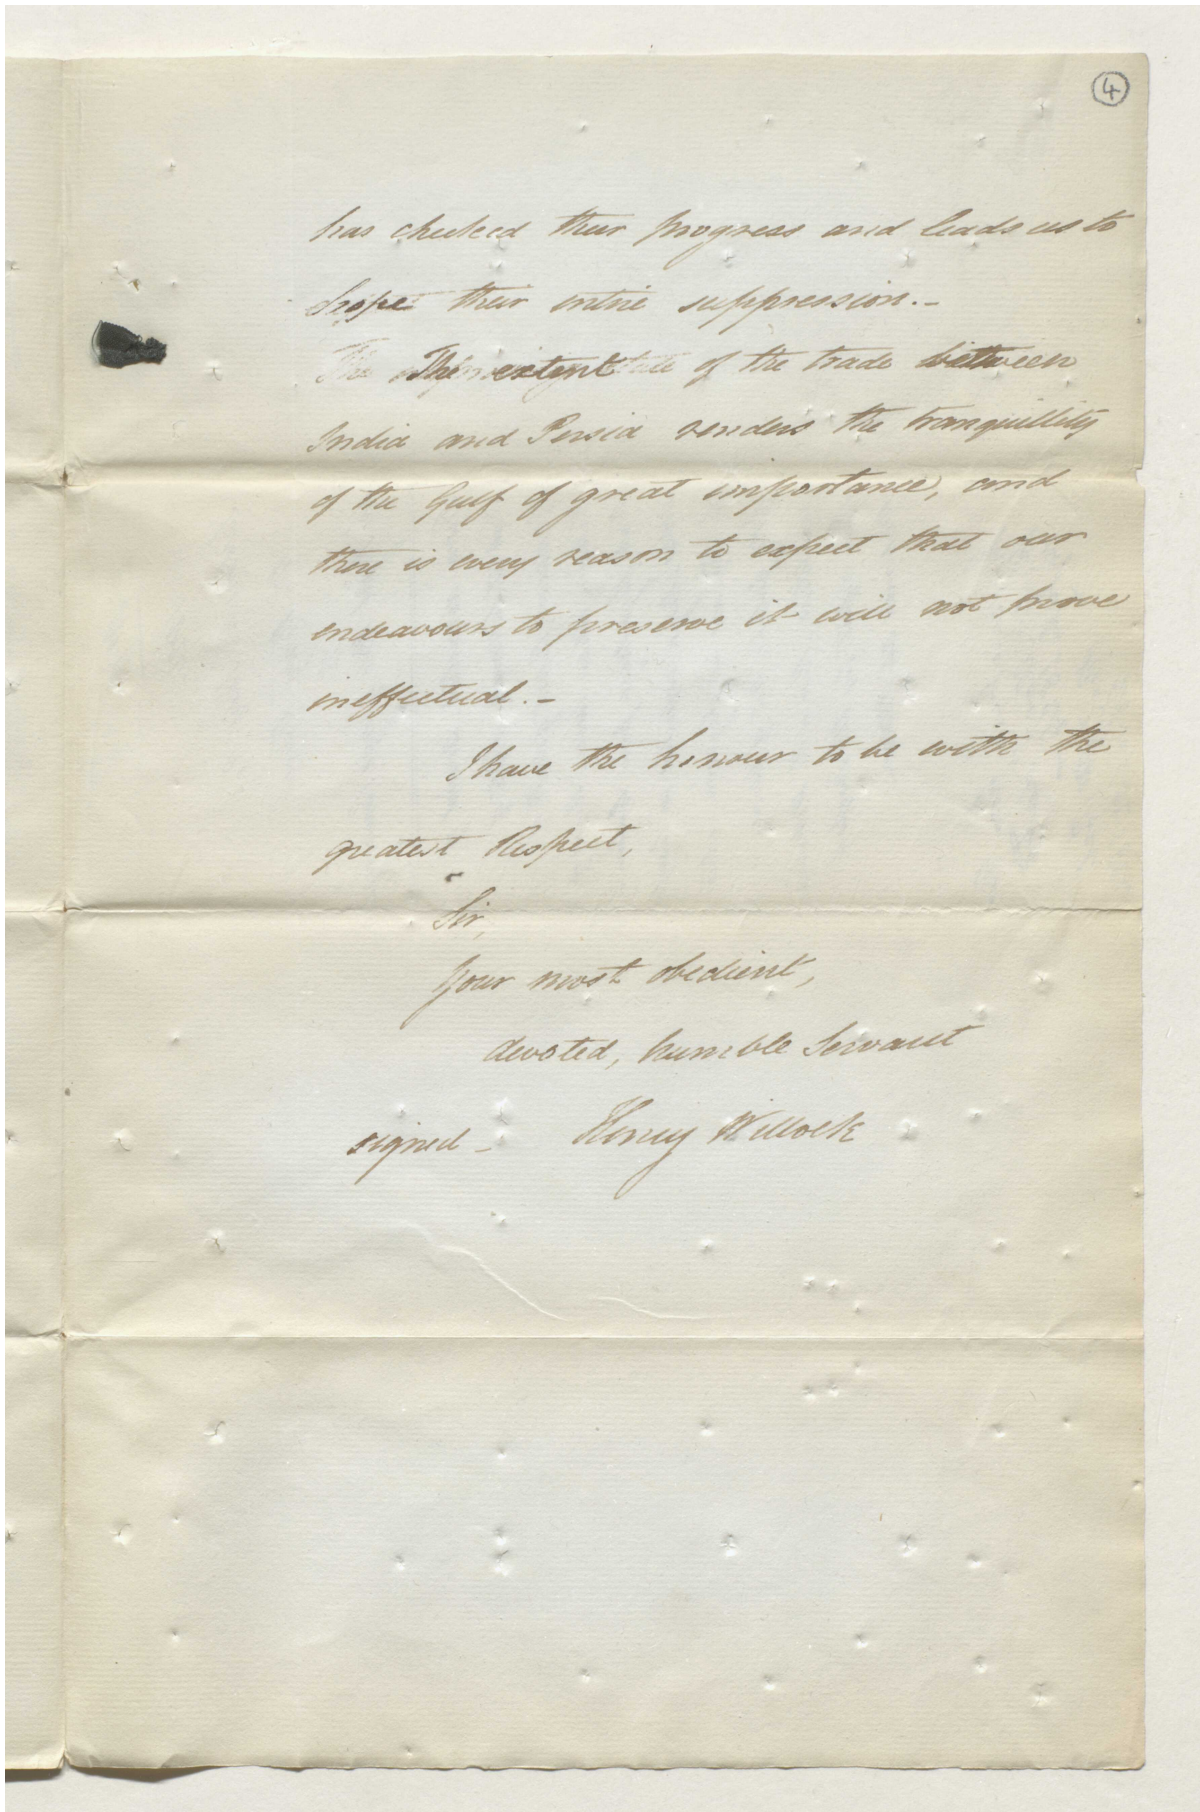 4
has checked their progress and leads us to
hope their entire suppression. -
The extent of the trade between
India and Persia renders the tranquillity
of the Gulf of great importance, and
there is every reason to expect that our
endeavours to preserve it will not prove
ineffectual. -
I have the honour to be with the
greatest Respect,
Sir,
Your most obedient,
devoted, humble Servant
signed - Henry Willock